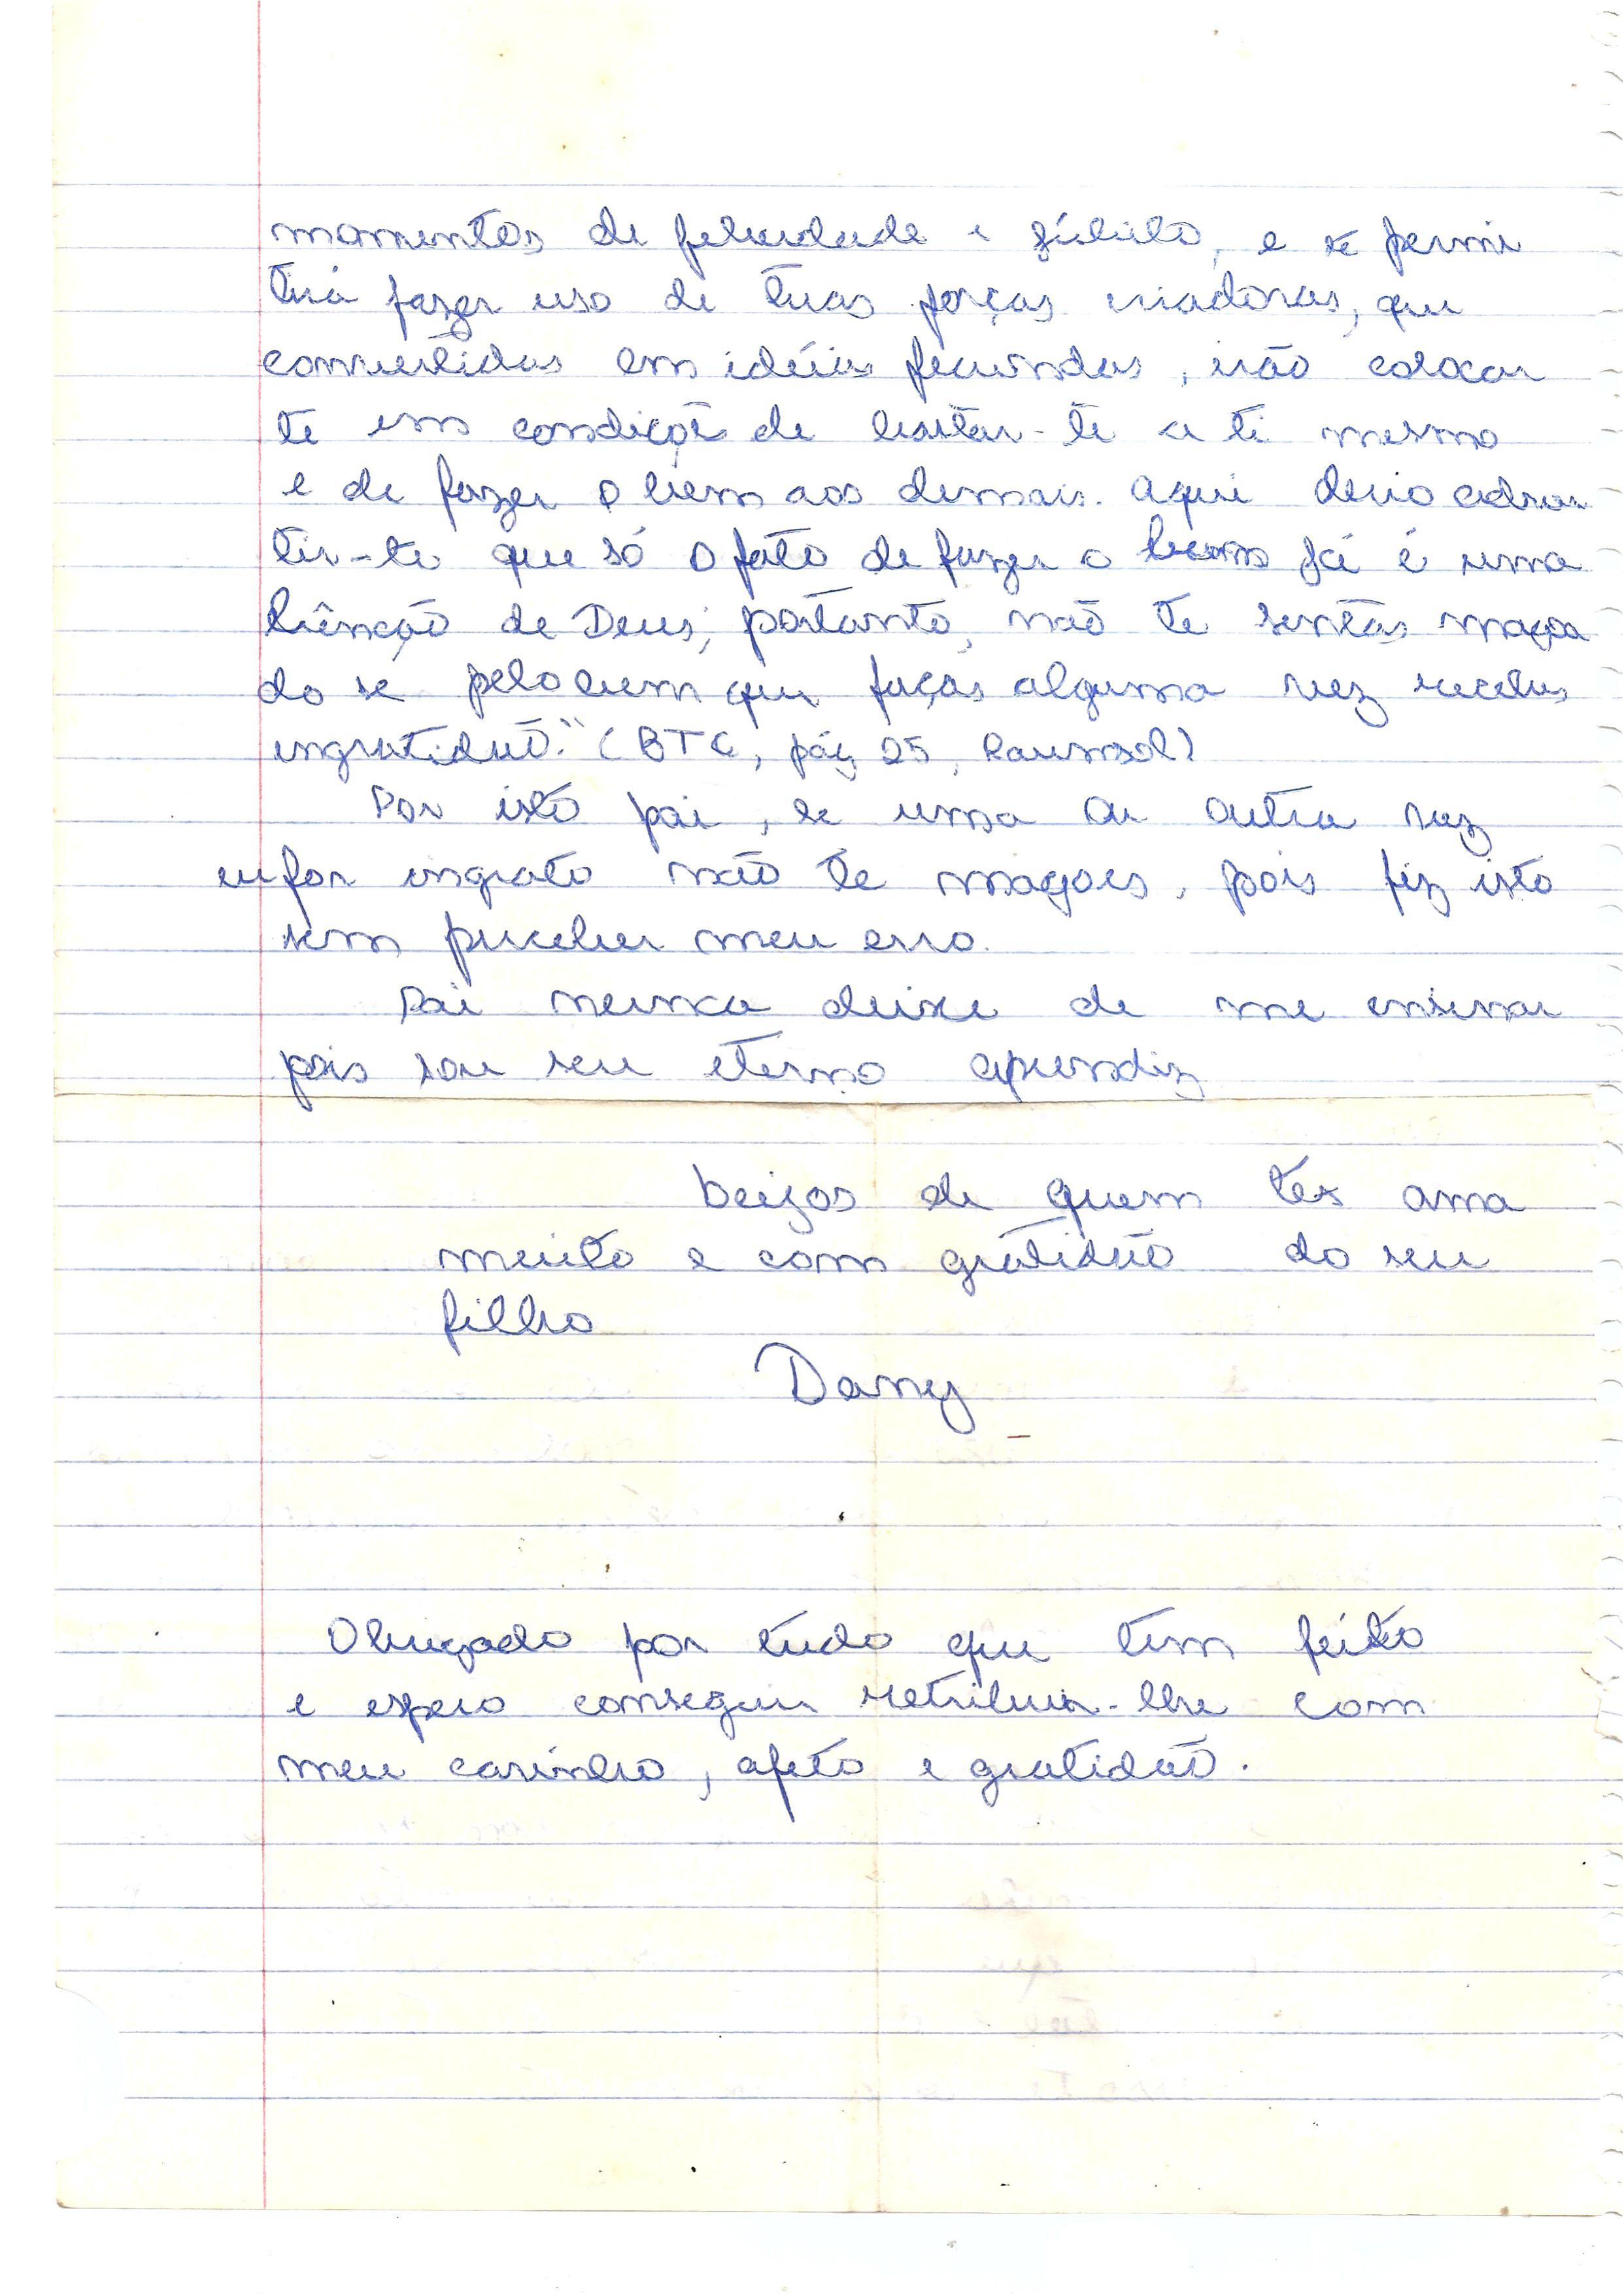 momentos de felicidade e júbilo, e te permi
tirá fazer uso de tuas forças criadoras, que
convertidas em idéias fecundas, irão colocar
te em condição de bastar-te a ti mesmo
e de fazer o bem aos demais. Aqui devo adver
tir-te que só o fato de fazer o bem já é uma
bênção de Deus; portanto, não te sentas magoa
do se pelo bem que faças alguma vez recebes
ingratidão." (BTC, pág 25, Raumsol)
Por isto pai, se uma ou outra vez
eu for ingrato não te magoes, pois fiz isto
sem perceber meu erro.
Pai nunca deixe de me ensinar
pois sou seu eterno aprendiz
beijos de quem tes ama
muito e com gratidão do seu
filho
Dany
Obrigado por tudo que tem feito
e espero conseguir retribuir-lhe com
meu carinho, afeto e gratidão.